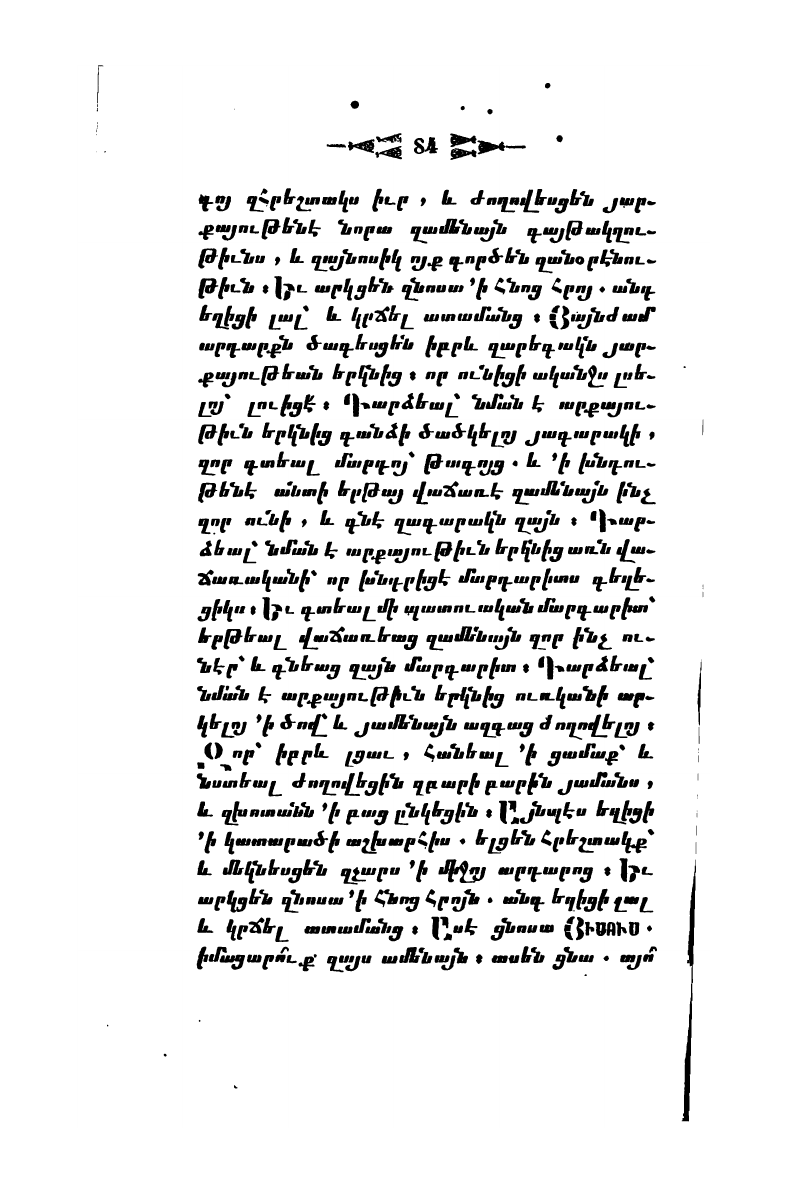 84
գոյ զհրեշտակս իւր , և ժողովեսցեն յար֊
քայութենէ նորա զամենայն գայթակղու֊
թիւնս , և զայնոսիկ ոյք գործեն զանօրէնու֊
թիւն ։ Եւ արկցեն զնոսա ՚ի հնոց հրոյ . անդ
եղիցի լալ՝ և կրճել ատամանց ։ Յայնժամ
արդարքն ծագեսցեն իբրև զարեգակն յար֊
քայութեան երկնից ։ որ ունիցի ականջս լսե֊
լոյ՝ լուիցէ ։ Դարձեալ՝ նման է արքայու֊
թիւն երկնից գանձի ծածկելոյ յագարակի ,
զոր գտեալ մարդոյ՝ թագոյց . և ՚ի խնդու֊
թենէ անտի երթայ վաճառէ զամենայն ինչ
զոր ունի , և գնէ զագարակն զայն ։ Դար֊
ձեալ՝ նման է արքայութիւն երկնից առն վա֊
ճառականի՝ որ խնդրիցէ մարգարիտս գեղե֊
ցիկս ։ Եւ գտեալ մի պատուական մարգարիտ՝
երթեալ վաճառեաց զամենայն զոր ինչ ու֊
նէր՝ և գնեաց զայն մարգարիտ ։ Դարձեալ՝
նման է արքայութիւն երկնից ուռկանի ար֊
կելոյ ՚ի ծով՝ և յամենայն ազգաց ժողովելոյ ։
Զոր՝ իբրև լցաւ , հանեալ ՚ի ցամաք՝ և
նստեալ ժողովեցին զբարի բարին յամանս ,
և զխոտանն ՚ի բաց ընկեցին ։ Այնպէս եղիցի
՚ի կատարածի աշխարհիս . ելցեն հրեշտակք՝
և մեկնեսցեն զչարս ՚ի միջոյ արդարոց ։ Եւ
արկցեն զնոսա ՚ի հնոց հրոյն . անդ եղիցի լալ
և կրճել ատամանց ։ Ասէ ցնոսա ՅԻՍՈՒՍ .
իմացարո՞ւք զայս ամենայն ։ ասեն ցնա . այո՛